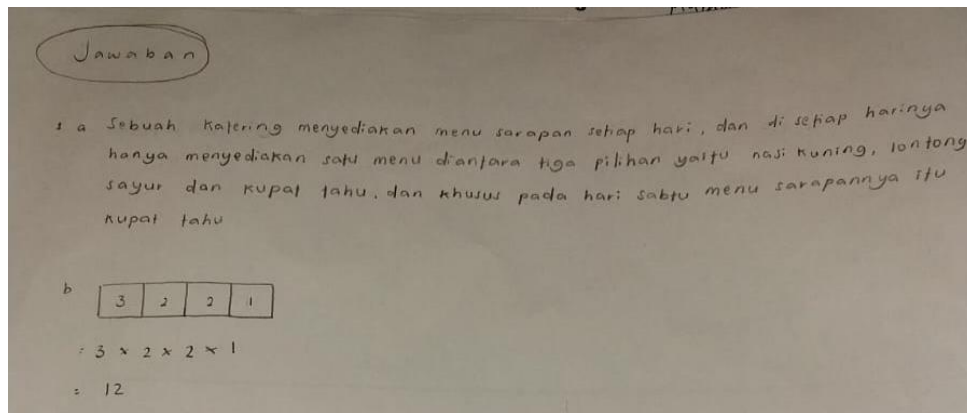 Jawaban
1 a Sebuah Katering menyediakan menu sarapan setiap hari, dan di setiap harinya
hanya menyediakan satu menu diantara tiga pilihan yaitu nasi kuning, lontong
sayur dan kupat tahu. dan khusus pada hari sabtu menu sarapannya itu
kupat tahu
b 3 2 2 1
= 3 × 2 × 2 × 1
= 12